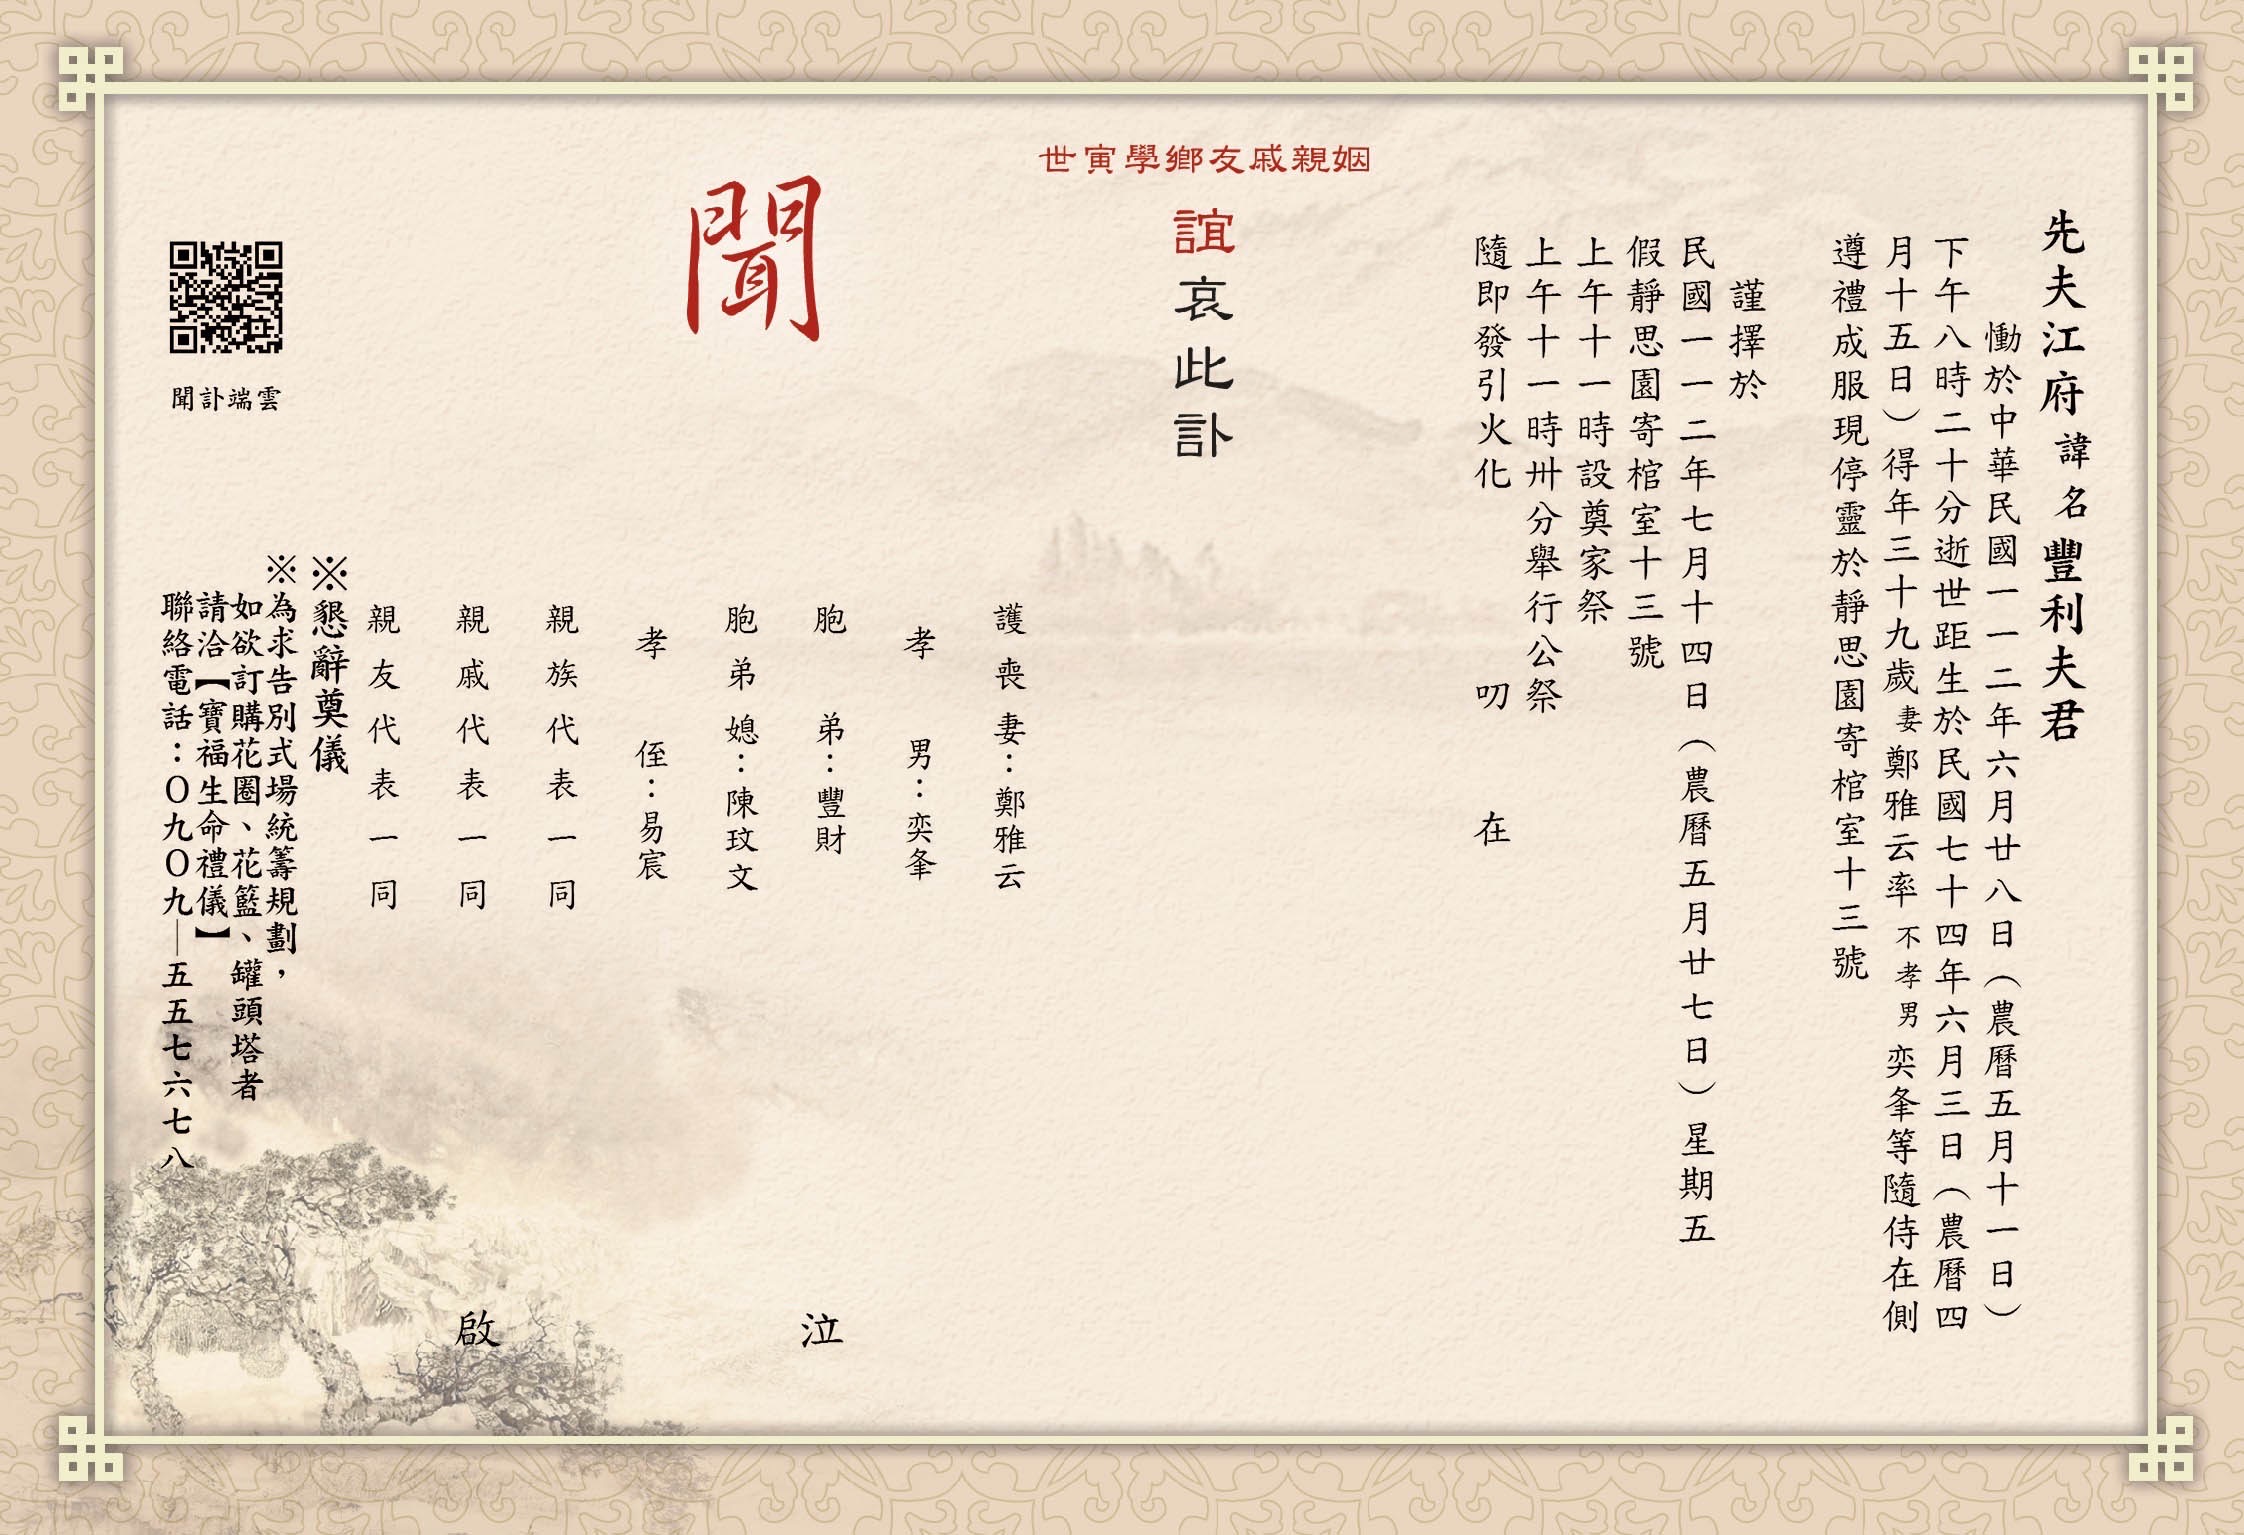 先夫江府諱名豐利夫君
慟於中華民國一一二年六月廿八日（農曆五月十一日）
下午八時二十分逝世距生於民國七十四年六月三日（農曆四
月十五日）得年三十九歲妻鄭雅云率不孝男奕夆等隨侍在側
遵禮成服現停靈於靜思園寄棺室十三號
謹擇於
民國一一二年七月十四日（農曆五月廿七日）星期五
假靜思園寄棺室十三號
上午十一時設奠家祭
上午十一時卅分舉行公祭
隨即發引火化　叨　在
世寅學鄉友戚親姻
誼哀此訃
聞
護喪妻：鄭雅云
孝　男：奕夆
胞　弟：豐財
胞弟媳：陳玟文
孝　侄：易宸
親族代表一同
親戚代表一同
親友代表一同
泣
啟
※懇辭奠儀
※為求告別式場統籌規劃，
如欲訂購花圈、花籃、罐頭塔者
請洽【寶福生命禮儀】
聯絡電話：０九０九—五五七六七八
聞訃端雲